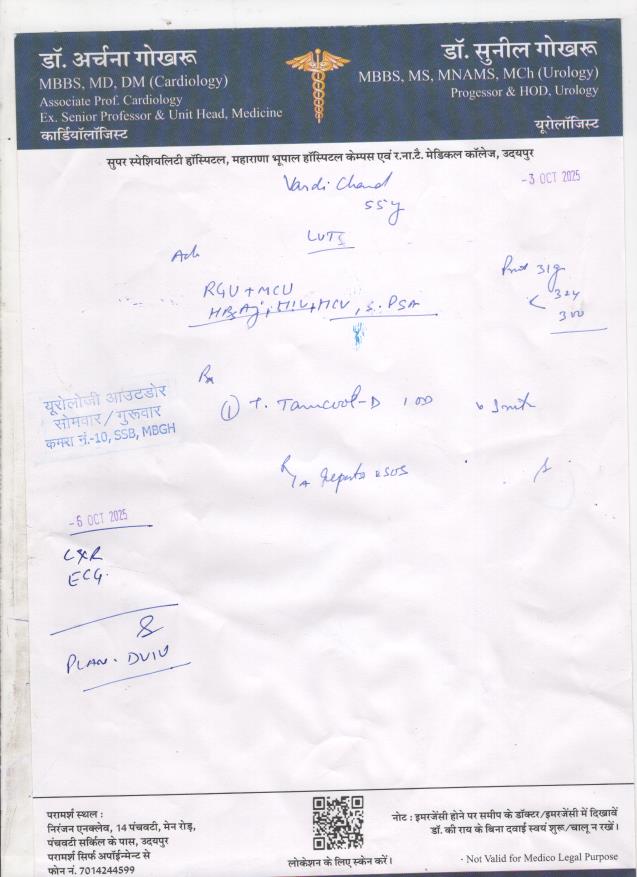 डॉ. अर्चना गोखरू
MBBS, MD, DM (Cardiology)
Associate Prof. Cardiology
Ex. Senior Professor & Unit Head, Medicine
कार्डियॉलॉजिस्ट
डॉ. सुनील गोखरू
MBBS, MS, MNAMS, MCh (Urology)
Progessor & HOD, Urology
यूरोलॉजिस्ट
सुपर स्पेशियलिटी हॉस्पिटल, महाराणा भूपाल हॉस्पिटल केम्पस एवं र.ना.टै. मेडिकल कॉलेज, उदयपुर
Vardi Chand
55y
-3 OCT 2025
LUTS
Adv
31g
RGU+MCU
324
300
HBsAg, HIV+HCV, S. PSA
Rx
① T. Tamcool-D 1 OD
यूरोलॉजी आउटडोर
सोमवार/गुरूवार
कमरा नं.-10, SSB, MBGH
R/A reports & SOS
-6 OCT 2025
CXR
ECG.
PLAN- DVIU
परामर्श स्थल :
निरंजन एनक्लेव, 14 पंचवटी, मेन रोड़,
पंचवटी सर्किल के पास, उदयपुर
परामर्श सिर्फ अपॉईन्मेन्ट से
फोन नं. 7014244599
लोकेशन के लिए स्केन करें।
नोट : इमरजेंसी होने पर समीप के डॉक्टर/इमरजेंसी में दिखावें
डॉ. की राय के बिना दवाई स्वयं शुरू/चालू न रखें।
· Not Valid for Medico Legal Purpose